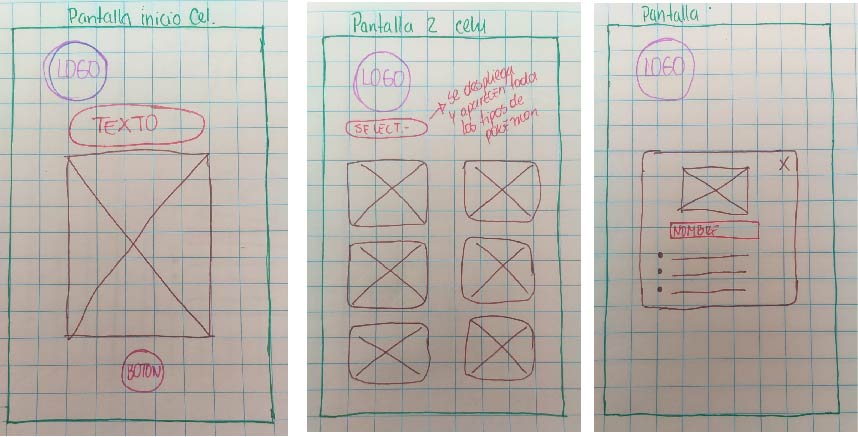 Pantalla inicio Cel.
LOGO
TEXTO
BOTON
Pantalla 2 celu
LOGO
SELECT.-
se despliega
y aparecen toda
los tipos de
pokémon
Pantalla
LOGO
X
NOMBRE